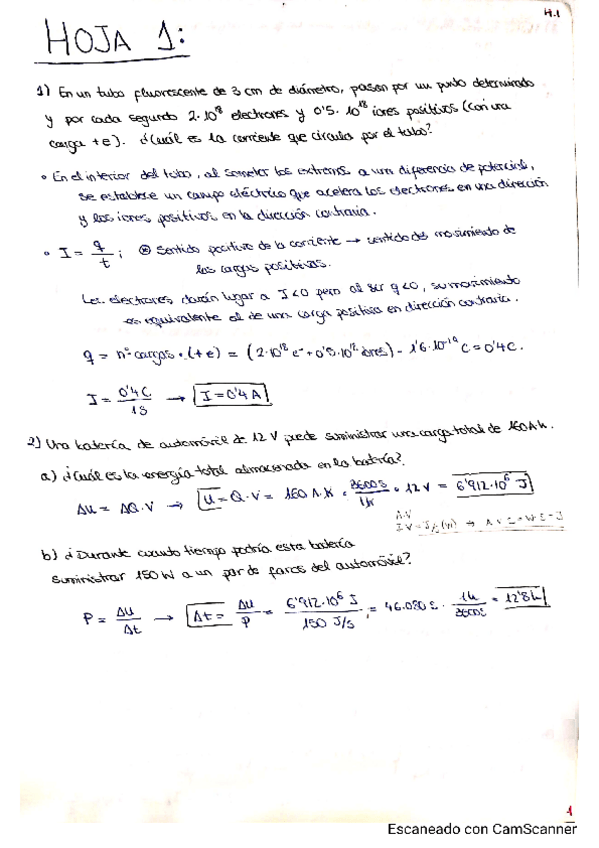 H.1
HOJA 1:
1) En un tubo fluorescente de 3 cm de diámetro, pasan por un punto determinado
y por cada segundo 2·10^18 electrones y 0'5·10^18 iones positivos (con una
carga +e). ¿Cuál es la corriente que circula por el tubo?
• En el interior del tubo, al someter los extremos a una diferencia de potencial,
se establece un campo eléctrico que acelera los electrones en una dirección
y los iones positivos en la dirección contraria.
• I = q/t ; ⊛ Sentido positivo de la corriente → sentido del movimiento de
las cargas positivas.
Los electrones darán lugar a I<0 pero al ser q<0, su movimiento
es equivalente al de una carga positiva en dirección contraria.
q = nº cargas · (+e) = (2·10^18 e⁻ + 0'5·10^18 iones) · 1'6·10^-19 C = 0'4C.
I = 0'4C/1s → I = 0'4 A
2) Una batería de automóvil de 12 V puede suministrar una carga total de 160 A·h.
a) ¿Cuál es la energía total almacenada en la batería?
ΔU = ΔQ·V → U = Q·V = 160 A·h · 3600s/1h · 12 V = 6'912·10^6 J
b) ¿Durante cuanto tiempo podría esta batería
suministrar 150 W a un par de faros del automóvil?
P = ΔU/Δt → Δt = ΔU/P = 6'912·10^6 J/150 J/s = 46.080 s · 1h/3600s = 12'8 h
1
Escaneado con CamScanner